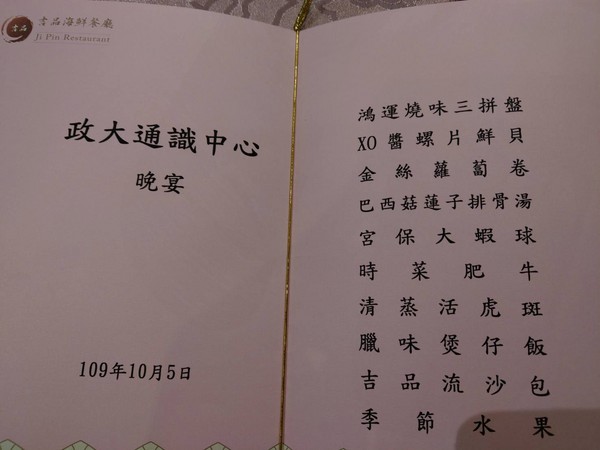 吉品
吉品海鮮餐廳
Ji Pin Restaurant
政大通識中心
晚宴
109年10月5日
鴻運燒味三拼盤
XO醬螺片鮮貝
金絲蘿蔔卷
巴西菇蓮子排骨湯
宮保大蝦球
時菜肥牛
清蒸活虎斑
臘味煲仔飯
吉品流沙包
季節水果